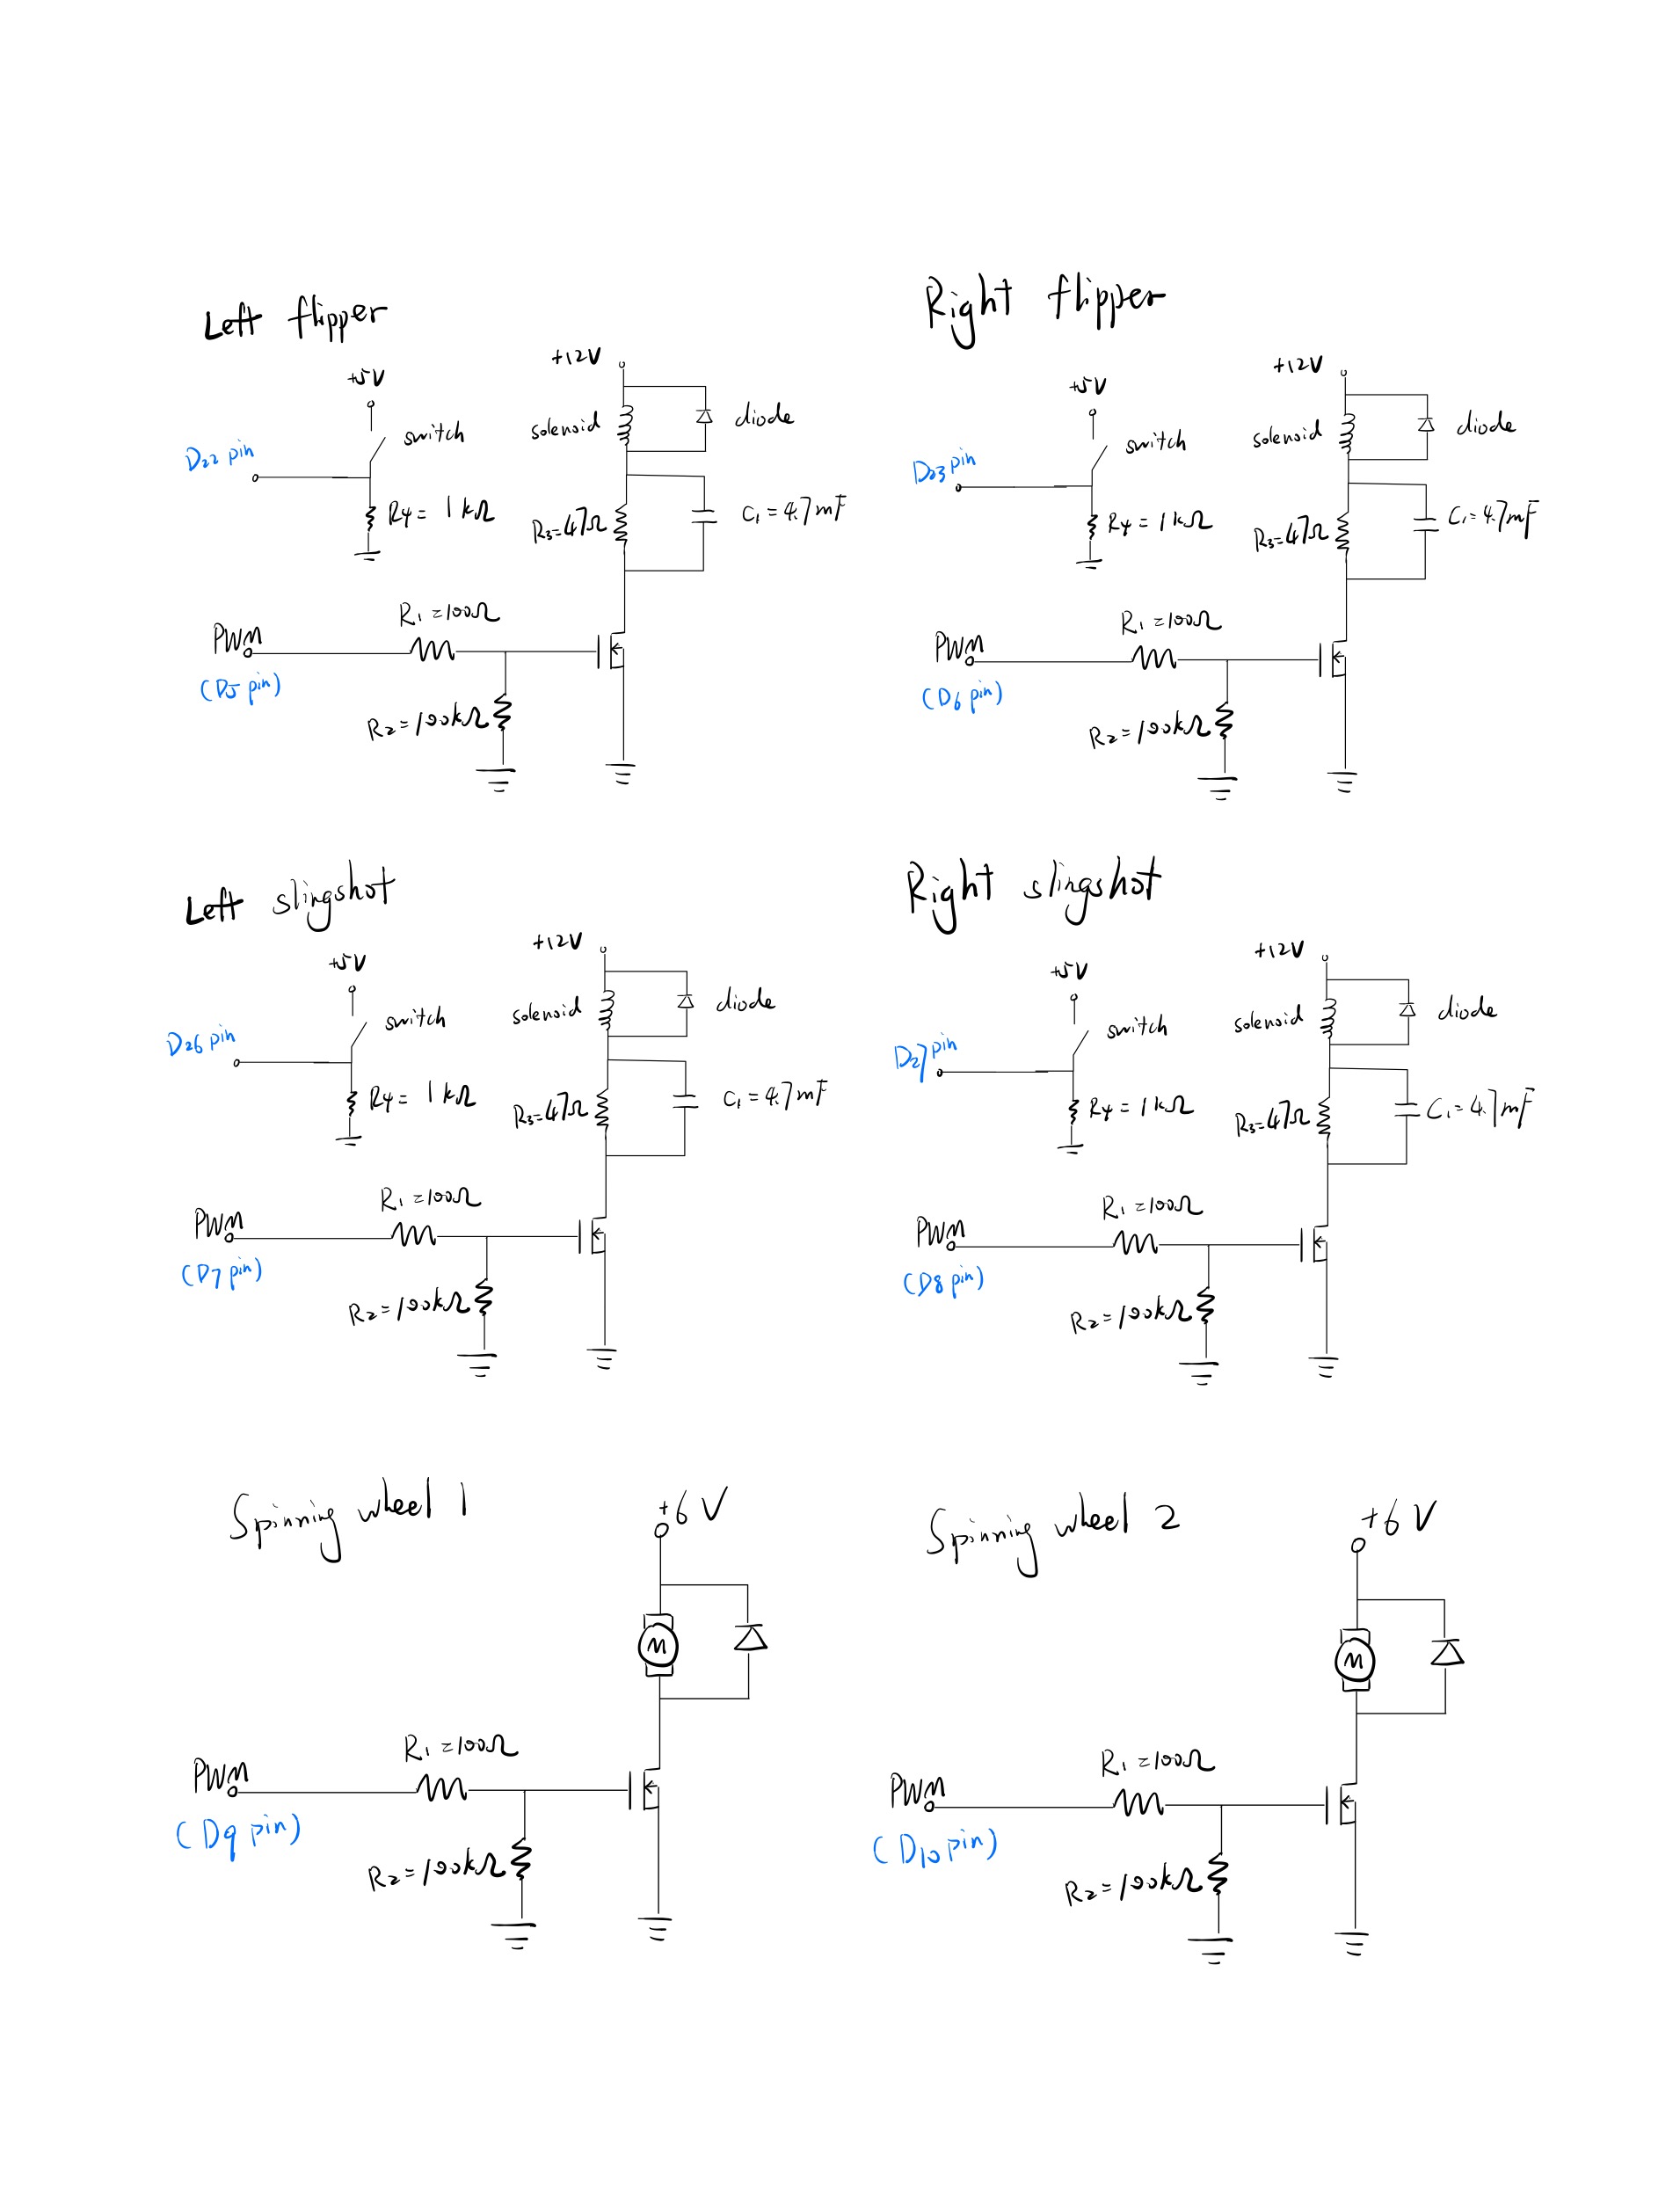 Left flipper
+5V
switch
D22 pin
R4 = 1kΩ
+12V
solenoid
diode
R3=47Ω
C1 = 4.7mF
PWM
(D5 pin)
R1=100Ω
R2=100kΩ
Right flipper
+5V
switch
D23 pin
R4 = 1kΩ
+12V
solenoid
diode
R3=47Ω
C1=4.7mF
PWM
(D6 pin)
R1=100Ω
R2=100kΩ
Left slingshot
+5V
switch
D26 pin
R4 = 1kΩ
+12V
solenoid
diode
R3=47Ω
C1 = 4.7mF
PWM
(D7 pin)
R1=100Ω
R2=100kΩ
Right slingshot
+5V
switch
D27 pin
R4 = 1kΩ
+12V
solenoid
diode
R3=47Ω
C1=4.7mF
PWM
(D8 pin)
R1=100Ω
R2=100kΩ
Spinning wheel 1
+6V
M
PWM
(D9 pin)
R1=100Ω
R2=100kΩ
Spinning wheel 2
+6V
M
PWM
(D10 pin)
R1=100Ω
R2=100kΩ